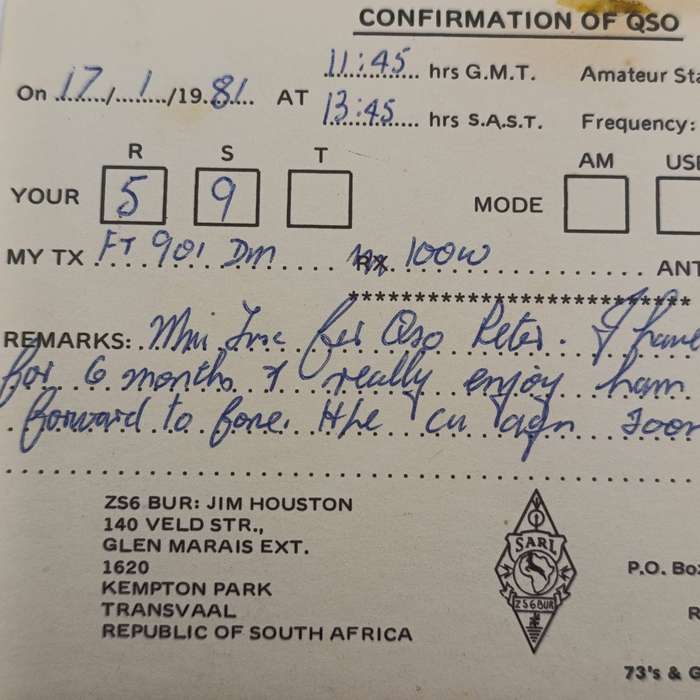 CONFIRMATION OF QSO
On 17/1/1981 AT 11:45 hrs G.M.T. Amateur Sta
13:45 hrs S.A.S.T. Frequency:
R S T AM USB
YOUR 5 9 MODE
MY TX FT 901 DM RX 100W ANT
************************
REMARKS: Mni for Qso Peter. I have
for 6 months & really enjoy ham
forward to fone. Hpe cu agn soon
ZS6 BUR: JIM HOUSTON
140 VELD STR.,
GLEN MARAIS EXT.
1620
KEMPTON PARK
TRANSVAAL
REPUBLIC OF SOUTH AFRICA
SARL
ZS6BUR
P.O. Box
R
73's & G